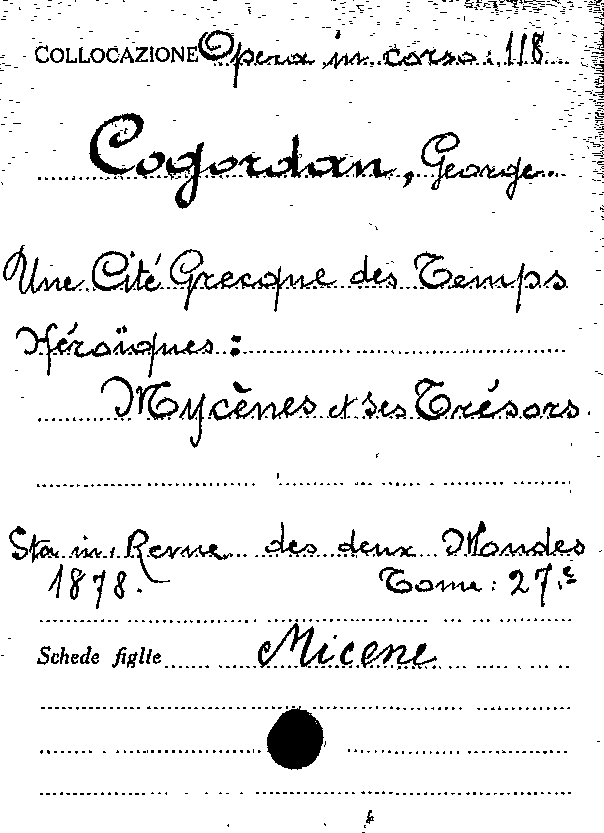 COLLOCAZIONE Opera in corso: 118
Cogordan, George
Une Cité Grecque des Temps
Héroïques:
Mycènes et ses Trésors
Sta in, Revue des deux Mondes
1878. Tome: 27.e
Schede figlie Micene